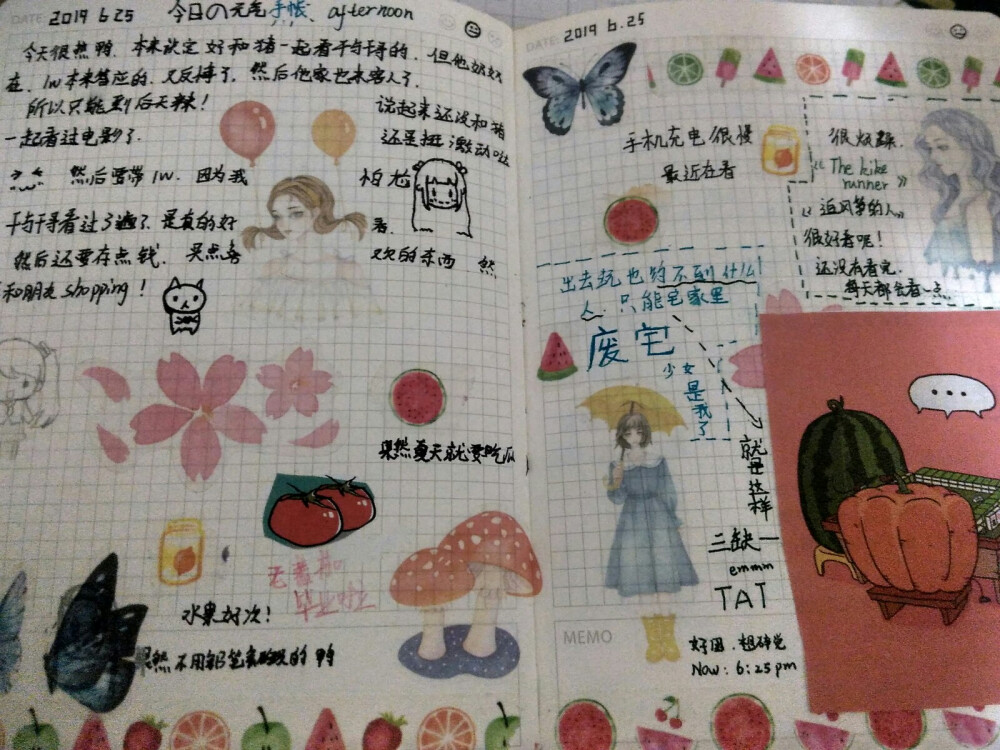 DATE: 2019 6.25 今日の元气手帐、afternoon
今天很热鸭、本来决定好和猪一起看千与千寻的、但他奶奶不
在、lw本来答应的、又反悔了、然后他家也来客人了、
所以只能到后天辣！
说起来还没和猪
一起看过电影了、
还是挺激动哒
然后要带lw、因为我
怕尬
千与千寻看过了遍了、是真的好
看、
然后还要存点钱、买点喜
欢的东西 然
和朋友shopping！
果然夏天就要吃瓜
水果好次！
果然不用铅笔
DATE: 2019 6.25
手机充电很慢
最近在看
很烦躁、
《The kite
runner》
《追风筝的人》
很好看呢！
还没有看完、
每天都会看一点、
出去玩也约不到什么
人、只能宅家里
废宅
少女
是我了
就是这样
三缺一
emmm
TAT
MEMO
好困、想碎觉
Now：6:25pm